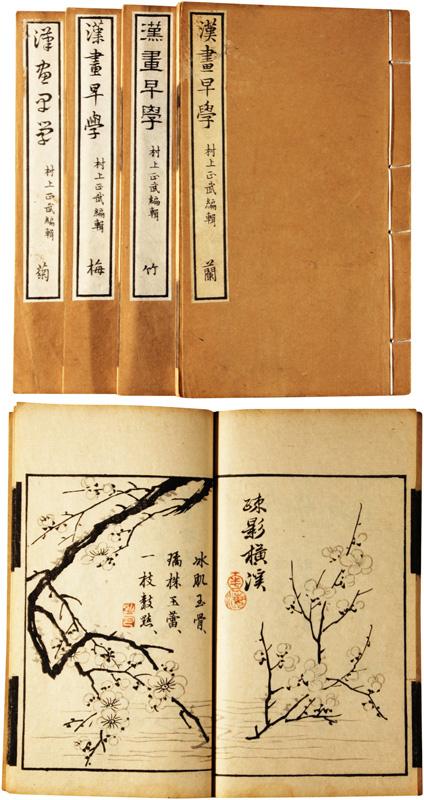 漢畫早學
村上正武編輯
蘭
漢畫早學
村上正武編輯
竹
漢畫早學
村上正武編輯
梅
漢画早学
村上正武編輯
菊
疎影横渓
冰肌玉骨
株玉蕾、
一枝數點、